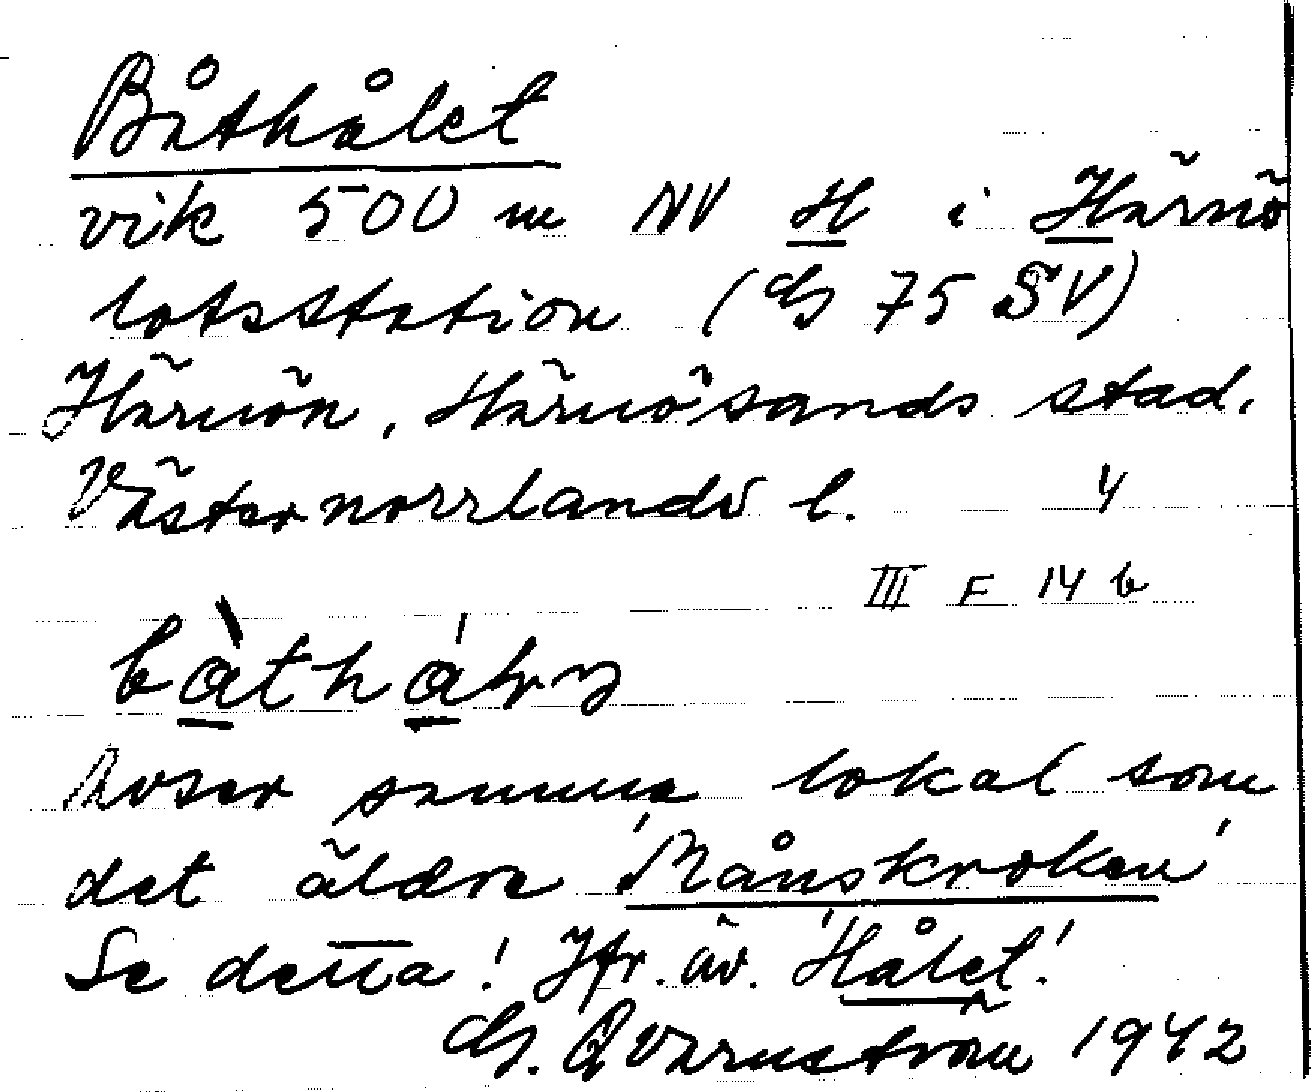 Båthålet
vik 500 m NV H i Härnö
lotsstation (Gs 75 SV)
Härnön, Härnösands stad,
Västernorrlands l. 4
III F 14 b
Avser samma lokal som
det äldre 'Månskroken'
Se detta! Jfr. äv. 'Hålet'!
Gs. Qvarnström 1942